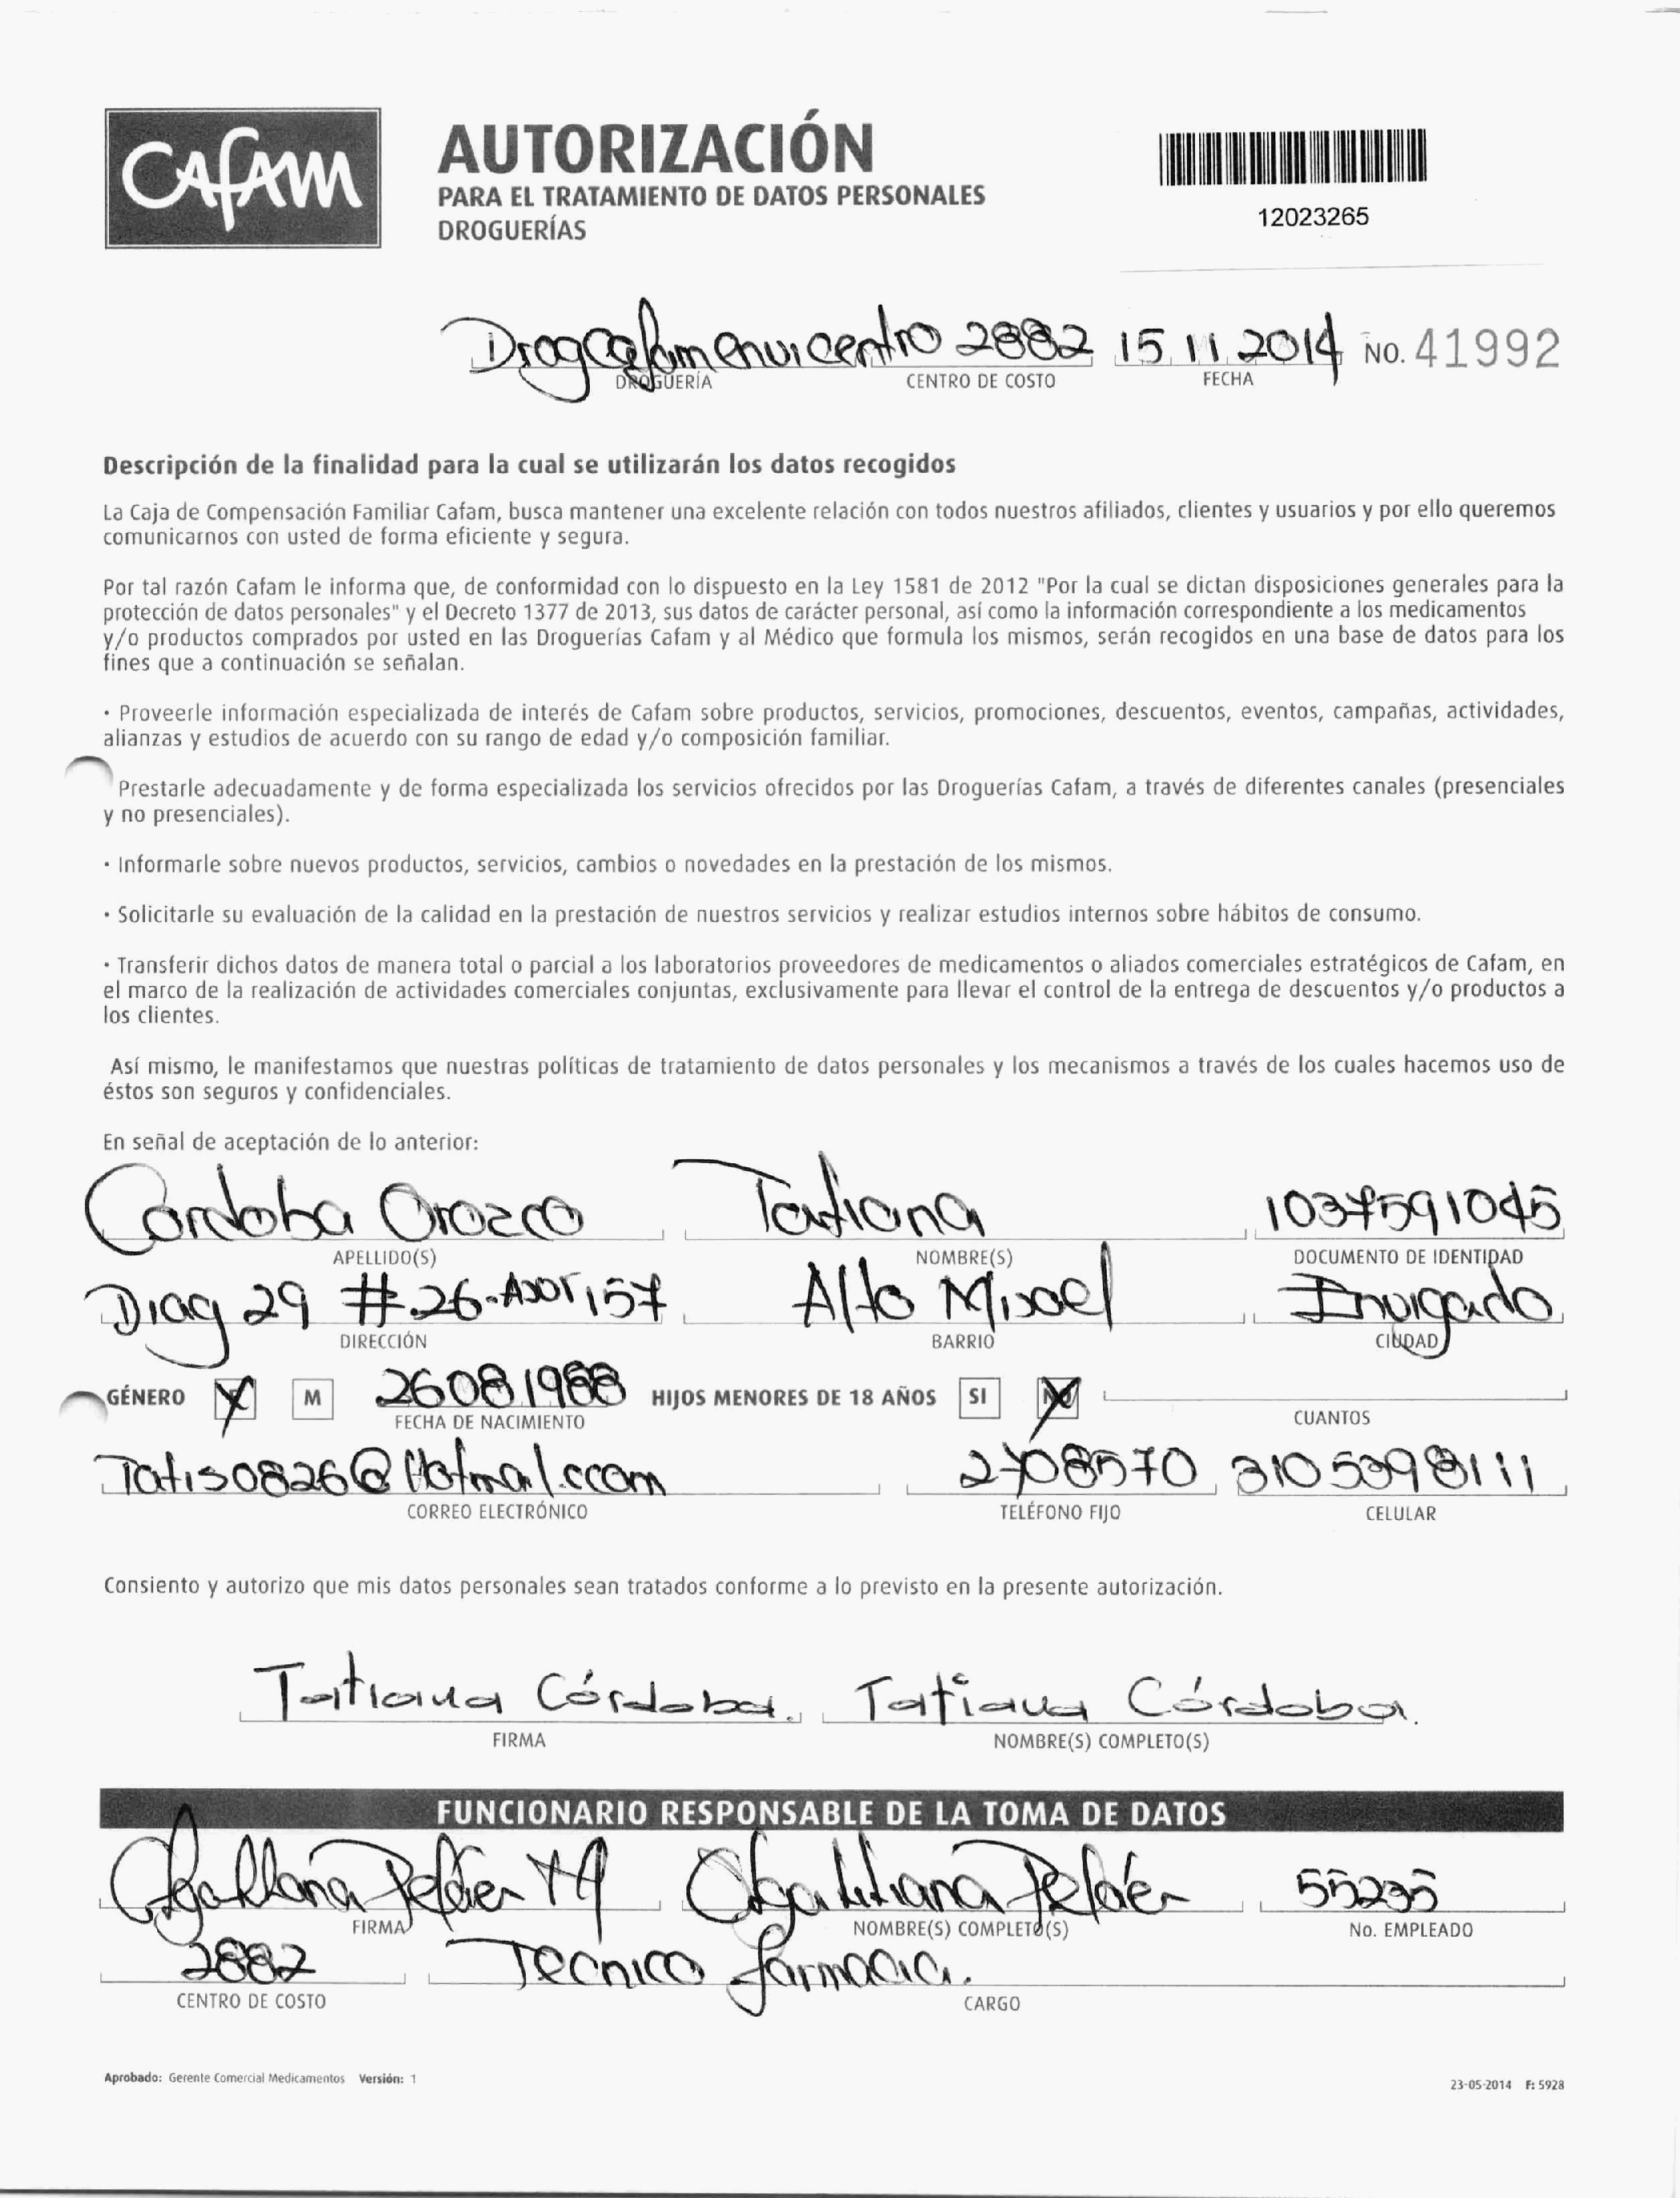 Cafam
AUTORIZACIÓN
PARA EL TRATAMIENTO DE DATOS PERSONALES
DROGUERÍAS
12023265
Drog Cafam Envicentro 2882 15 11 2014 No. 41992
DROGUERÍA CENTRO DE COSTO FECHA
Descripción de la finalidad para la cual se utilizarán los datos recogidos
La Caja de Compensación Familiar Cafam, busca mantener una excelente relación con todos nuestros afiliados, clientes y usuarios y por ello queremos
comunicarnos con usted de forma eficiente y segura.
Por tal razón Cafam le informa que, de conformidad con lo dispuesto en la Ley 1581 de 2012 "Por la cual se dictan disposiciones generales para la
protección de datos personales" y el Decreto 1377 de 2013, sus datos de carácter personal, así como la información correspondiente a los medicamentos
y/o productos comprados por usted en las Droguerías Cafam y al Médico que formula los mismos, serán recogidos en una base de datos para los
fines que a continuación se señalan.
· Proveerle información especializada de interés de Cafam sobre productos, servicios, promociones, descuentos, eventos, campañas, actividades,
alianzas y estudios de acuerdo con su rango de edad y/o composición familiar.
Prestarle adecuadamente y de forma especializada los servicios ofrecidos por las Droguerías Cafam, a través de diferentes canales (presenciales
y no presenciales).
· Informarle sobre nuevos productos, servicios, cambios o novedades en la prestación de los mismos.
· Solicitarle su evaluación de la calidad en la prestación de nuestros servicios y realizar estudios internos sobre hábitos de consumo.
· Transferir dichos datos de manera total o parcial a los laboratorios proveedores de medicamentos o aliados comerciales estratégicos de Cafam, en
el marco de la realización de actividades comerciales conjuntas, exclusivamente para llevar el control de la entrega de descuentos y/o productos a
los clientes.
Así mismo, le manifestamos que nuestras políticas de tratamiento de datos personales y los mecanismos a través de los cuales hacemos uso de
éstos son seguros y confidenciales.
En señal de aceptación de lo anterior:
Cordoba Orozco Tatiana 1037591045
APELLIDO(S) NOMBRE(S) DOCUMENTO DE IDENTIDAD
Diag 29 #.26- 157 Alto Misael Envigado
DIRECCIÓN BARRIO CIUDAD
GÉNERO M 26081988 HIJOS MENORES DE 18 AÑOS SI NO
FECHA DE NACIMIENTO CUANTOS
Tatis0826@Hotmal.ccom 2708570 3105398111
CORREO ELECTRÓNICO TELÉFONO FIJO CELULAR
Consiento y autorizo que mis datos personales sean tratados conforme a lo previsto en la presente autorización.
Tatiana Córdoba. Tatiana Córdoba.
FIRMA NOMBRE(S) COMPLETO(S)
FUNCIONARIO RESPONSABLE DE LA TOMA DE DATOS
Olga Liliana Peláez M Olga Liliana Peláez 55235
FIRMA NOMBRE(S) COMPLETO(S) No. EMPLEADO
2882 Tecnico farmacia.
CENTRO DE COSTO CARGO
Aprobado: Gerente Comercial Medicamentos Versión: 1
23-05-2014 F: 5928